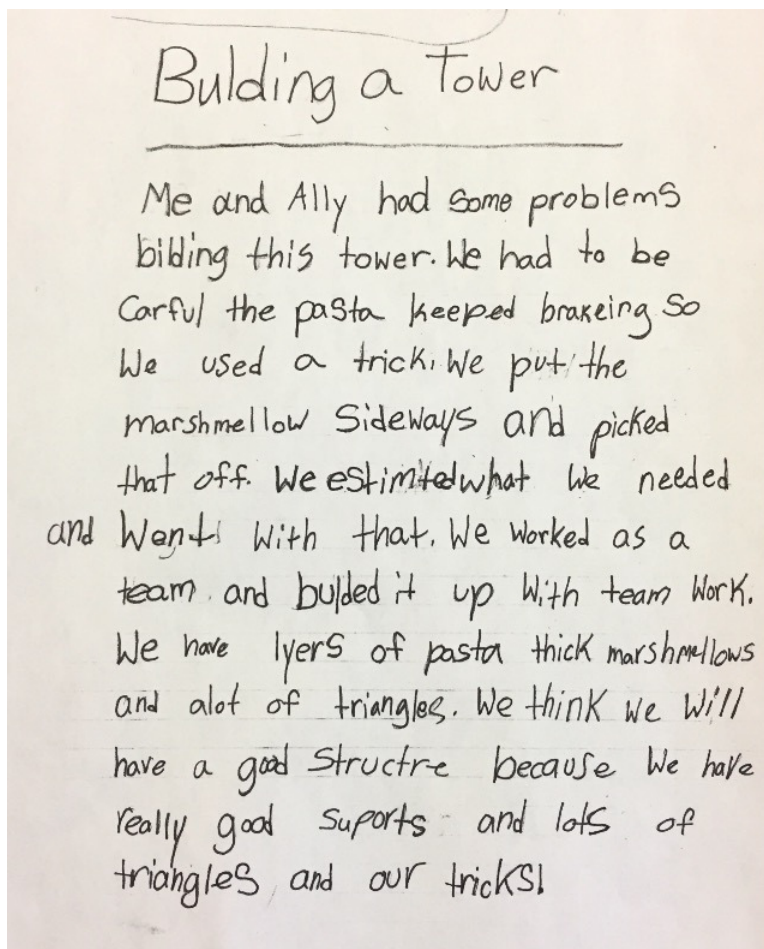 Bulding a Tower
Me and Ally had some problems
bilding this tower. We had to be
Carful the pasta keeped brakeing So
We used a trick. We put the
marshmellow Sideways and picked
that off. We estimited what We needed
and Went With that. We worked as a
team and bulded it up With team Work.
We have lyers of pasta thick marshmellows
and alot of triangles. We think we Will
have a good Structre because We have
really good suports and lots of
triangles and our tricks!